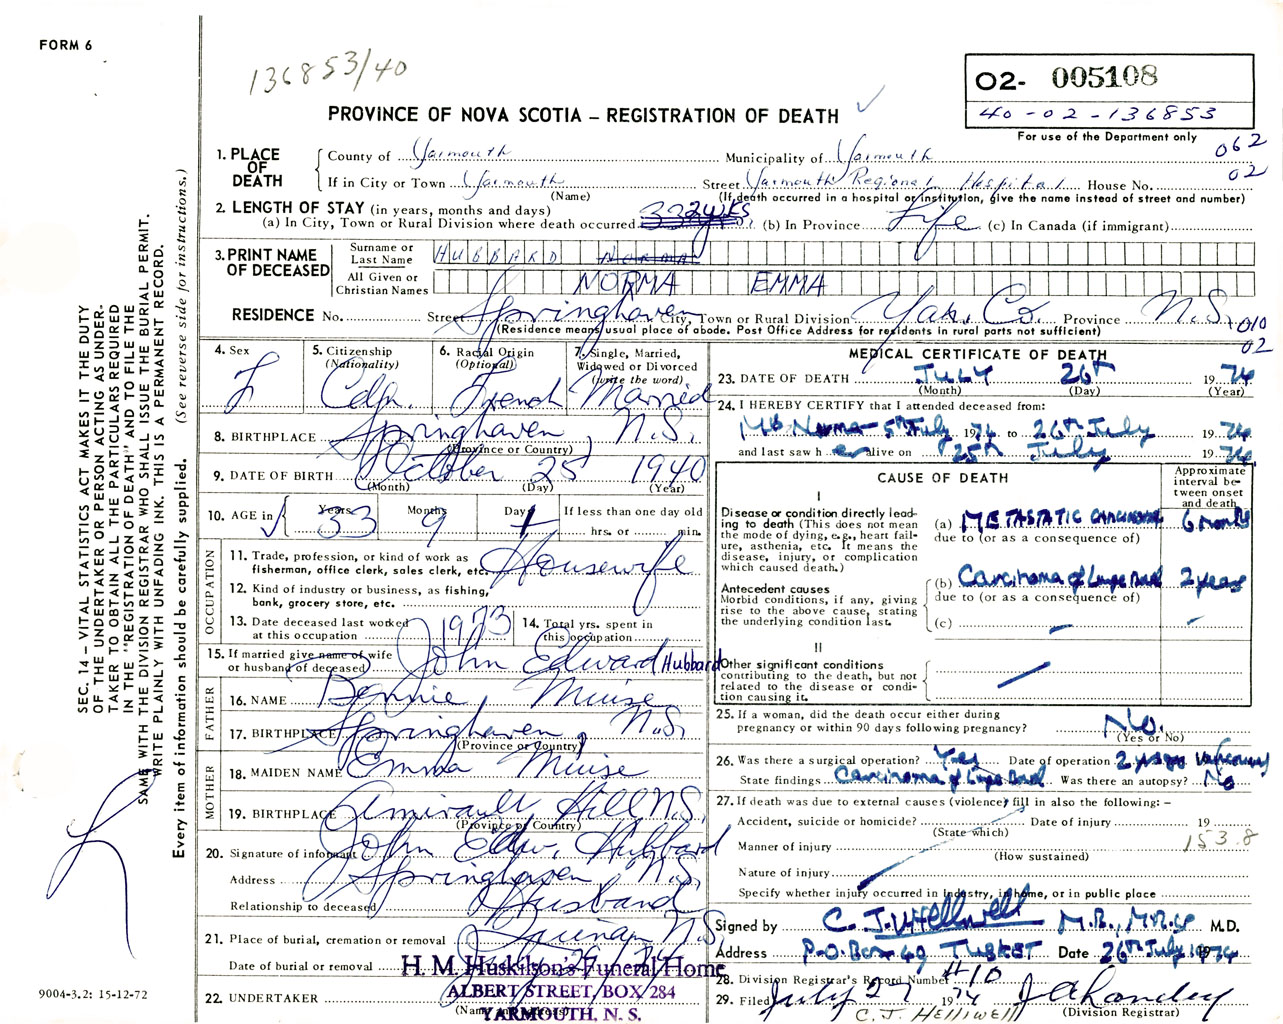 FORM 6
136853/40
02- 005108
40-02-136853
For use of the Department only
PROVINCE OF NOVA SCOTIA – REGISTRATION OF DEATH
062
02
1. PLACE OF DEATH
County of Yarmouth Municipality of Yarmouth
If in City or Town Yarmouth Street Yarmouth Regional Hospital House No.
(Name) (If death occurred in a hospital or institution, give the name instead of street and number)
2. LENGTH OF STAY (in years, months and days)
(a) In City, Town or Rural Division where death occurred (b) In Province Life (c) In Canada (if immigrant)
3. PRINT NAME OF DECEASED
Surname or Last Name HUBBARD NORMA
All Given or Christian Names NORMA EMMA
RESIDENCE No. Street Springhaven City, Town or Rural Division Yar. Co. Province N.S.
(Residence means usual place of abode. Post Office Address for residents in rural parts not sufficient)
010
02
4. Sex F
5. Citizenship (Nationality) Cdn.
6. Racial Origin (Optional) French
7. Single, Married, Widowed or Divorced (write the word) Married
8. BIRTHPLACE Springhaven, N.S.
(Province or Country)
9. DATE OF BIRTH October 25 1940
(Month) (Day) (Year)
10. AGE in Years 33 Months 9 Days 1 If less than one day old
hrs. or min.
OCCUPATION
11. Trade, profession, or kind of work as fisherman, office clerk, sales clerk, etc. Housewife
12. Kind of industry or business, as fishing, bank, grocery store, etc.
13. Date deceased last worked at this occupation 1973
14. Total yrs. spent in this occupation
15. If married give name of wife or husband of deceased John Edward Hubbard
FATHER
16. NAME Bennie Muise
17. BIRTHPLACE Springhaven, N.S.
(Province or Country)
MOTHER
18. MAIDEN NAME Emma Muise
19. BIRTHPLACE Amirault Hill N.S.
(Province or Country)
20. Signature of informant John Edw. Hubbard
Address Springhaven N.S.
Relationship to deceased Husband
21. Place of burial, cremation or removal Quinan N.S.
Date of burial or removal
22. UNDERTAKER
(Name and address)
H. M. Huskilson's Funeral Home
ALBERT STREET, BOX 284
YARMOUTH, N. S.
MEDICAL CERTIFICATE OF DEATH
23. DATE OF DEATH JULY 26th 1974
(Month) (Day) (Year)
24. I HEREBY CERTIFY that I attended deceased from:
5th July 1974 to 26th July 1974
and last saw her alive on 25th July 1974
CAUSE OF DEATH
Approximate interval between onset and death
I
Disease or condition directly leading to death (This does not mean the mode of dying, e.g., heart failure, asthenia, etc. It means the disease, injury, or complication which caused death.)
(a) METASTATIC CARCINOMA 6 months
due to (or as a consequence of)
Antecedent causes
Morbid conditions, if any, giving rise to the above cause, stating the underlying condition last.
(b) Carcinoma of Large Bowel 2 years
due to (or as a consequence of)
(c) – –
II
Other significant conditions contributing to the death, but not related to the disease or condition causing it.
25. If a woman, did the death occur either during pregnancy or within 90 days following pregnancy? No.
(Yes or No)
26. Was there a surgical operation? Yes Date of operation 2 yrs ago
State findings Carcinoma of Large Bowel Was there an autopsy? No
27. If death was due to external causes (violence) fill in also the following: –
Accident, suicide or homicide? Date of injury 19
(State which)
Manner of injury
153.8
(How sustained)
Nature of injury
Specify whether injury occurred in Industry, in home, or in public place
Signed by C. J. Helliwell M.B., M.D.
Address P.O. Box 49 TUSKET Date 26th July 1974
28. Division Registrar's Record Number #10
29. Filed July 27 1974
(Division Registrar)
C. J. HELLIWELL
SEC. 14 – VITAL STATISTICS ACT MAKES IT THE DUTY
OF THE UNDERTAKER OR PERSON ACTING AS UNDER-
TAKER TO OBTAIN ALL THE PARTICULARS REQUIRED
IN THE "REGISTRATION OF DEATH" AND TO FILE THE
SAME WITH THE DIVISION REGISTRAR WHO SHALL ISSUE THE BURIAL PERMIT.
WRITE PLAINLY WITH UNFADING INK. THIS IS A PERMANENT RECORD.
Every item of information should be carefully supplied. (See reverse side for instructions.)
9004-3.2: 15-12-72